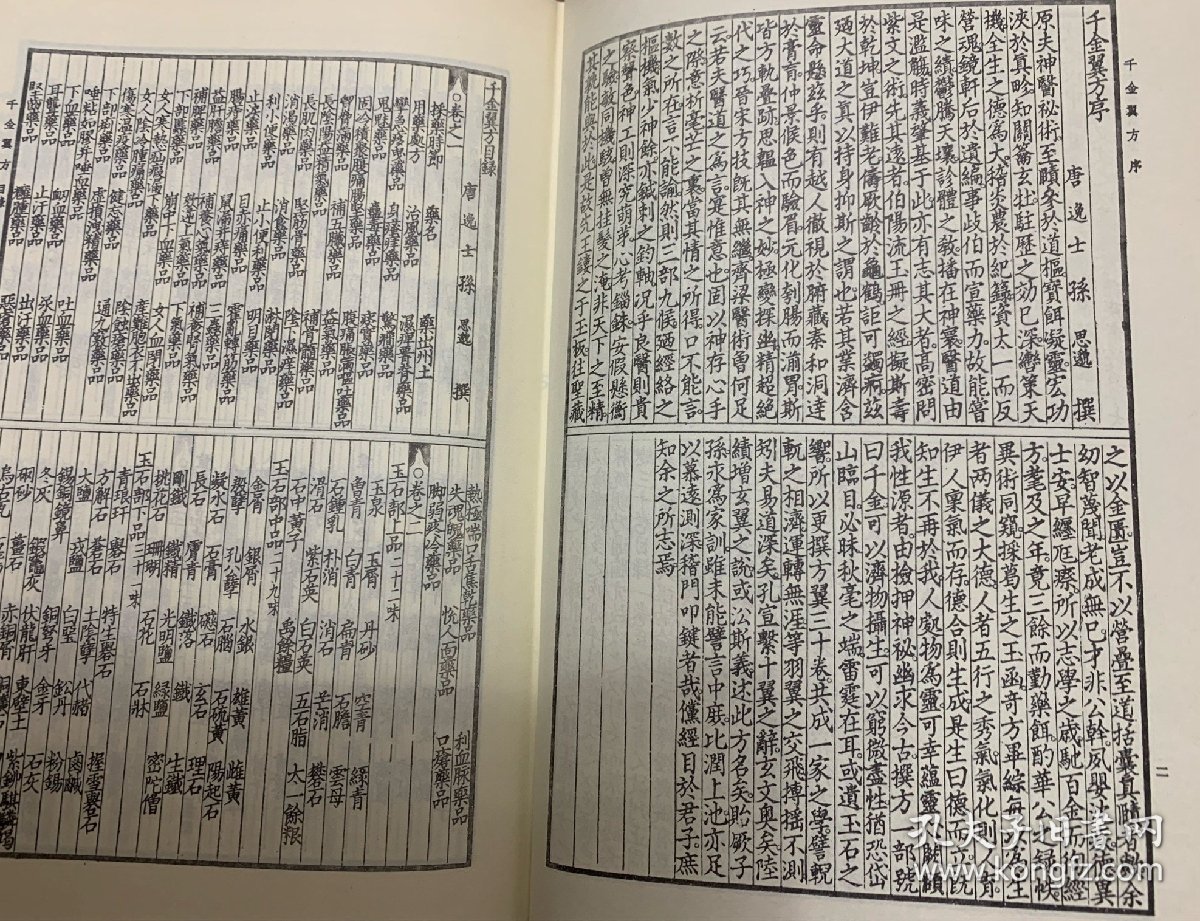 千金翼方 序
千金翼方序
唐 逸 士 孫 思邈 撰
原夫神醫秘術至賾參於道樞寶餌凝靈宏功
浹於真畛知關籥玄牡駐歷之効已深轡策天
機全生之德為大稽炎農於紀籙資太一而反
營魂鏡軒后於遺編事歧伯而宣藥力故能嘗
味之績鬱騰天壤診體之教播在神寰醫道由
是濫觴時義肇基於此亦有志其大者高密問
紫文之術先其遠者伯陽流玉冊之經擬斯壽
於乾坤豈伊難老儔厥齡於龜鶴詎可蠲痾茲
迺大道之真以持身抑斯之謂也若其業濟含
靈命懸兹乎則有越人徹視於腑藏秦和洞達
於膏肓仲景候色而驗眉元化刳腸而湔胃斯
皆方軌疊跡思韞入神之妙極變探幽精超絕
代之巧晉宋方技既其無繼齊梁醫術曾何足
云若夫醫道之為言寔惟意也固以神存心手
之際意析毫芒之裏當其情之所得口不能言
數之所在言不能諭然則三部九候迺經絡之
樞機氣少神餘亦鍼刺之鈞軸況乎良醫則貴
察聲色神工則深究萌芽心考錙銖安假懸衡
之驗敏同機駭曾無挂髮之淹非天下之至精
其孰能與於此是故先王鏤之于玉板往聖藏
之以金匱豈不以營疊至道括囊真賾者歟余
幼智蔑聞老成無已才非公幹夙嬰沈疾德異
士安早纏尪瘵所以志學之歲馳百金而徇經
方耄及之年竟三餘而勤藥餌酌華公之録帙
異術同窺採葛生之玉函奇方畢綜每以為生
者兩儀之大德人者五行之秀氣氣化則人育
伊人稟氣而存德合則生成是生曰德而立既
知生不再於我人處物為靈可幸蘊靈心闕頤
我性源者由檢押神秘幽求今古撰方一部號
曰千金可以濟物攝生可以窮微盡性猶恐岱
山臨目必昧秋毫之端雷霆在耳或遺玉石之
響所以更撰方翼三十卷共成一家之學譬輗
軏之相濟運轉無涯等羽翼之交飛摶搖不測
矧夫易道深矣孔宣繫十翼之辭玄文奧矣陸
績增玄翼之說或沿斯義述此方名矣貽厥子
孫永為家訓雖未能譬言中庶比潤上池亦足
以慕遠測深稽門叩鍵者哉儻經目於君子庶
知余之所志焉
二
千金翼方目錄
唐 逸 士 孫 思邈 撰
○卷之一
採藥時節 藥名 藥出州土
用藥處方
治風藥品 濕痺腰脊藥品
攣急疼曳藥品 身瘙痒藥品 驚癇藥品
鬼魅藥品 蠱毒藥品 痰實藥品
固冷積聚腹痛腸堅藥品 腹痛脹滿嘔吐藥品
胸脅滿藥品 補五臟藥品 益氣藥品
長陰陽益精藥品 補骨髓藥品
長肌肉藥品 堅筋骨藥品 陰下濕痒藥品
消渴藥品 消食藥品 淋閉藥品
利小便藥品 止小便利藥品 明目藥品
止淚藥品 目赤痛藥品
腸痔藥品 鼠漏藥品 三蟲藥品
補養心氣藥品 補養腎氣藥品
補脾藥品 欬逆上氣藥品 下氣藥品
下部䘌藥品 崩中下血藥品 女人血閉藥品
女人寒熱疝瘕漏下藥品 產難胞衣不出藥品
女人陰冷腫痛藥品 陰蝕瘡藥品
傷寒溫疫藥品 健忘藥品 通九竅藥品
下部痛藥品 虛損洩精藥品
唾粘如膠井唾血藥品 吐血藥品
下血藥品 衂血藥品 尿血藥品
耳聾藥品 止汗藥品 出汗藥品
堅齒藥品 癰腫藥品 惡瘡藥品
熱極喘口舌焦乾藥品 利血脉藥品
失魂魄藥品 悅人面藥品 口瘡藥品
脚弱疼冷藥品
○卷之二
玉石部上品二十二味
玉泉 玉屑 丹砂 空青 綠青
曾青 白青 扁青 石膽 雲母
石鍾乳 朴消 消石 芒消 礬石
滑石 紫石英 白石英 五石脂 太一餘粮
石中黃子 禹餘糧
玉石部中品二十九味
金屑 銀屑 水銀 雄黃 雌黃
殷孽 孔公孽 石腦 石硫黃 陽起石
凝水石 石膏 磁石 玄石 理石
長石 膚青 鐵落 鐵 生鐵
剛鐵 鐵精 光明鹽 緑鹽 密陀僧
桃花石 珊瑚 石花 石牀
玉石部下品三十一味
青琅玕 礜石 特生礜石 握雪礜石
方解石 蒼石 土陰孽 代赭 鹵鹹
大鹽 戎鹽 白堊 鉛丹 粉錫
錫銅鏡鼻 銅弩牙 金牙 石灰
冬灰 鍛竈灰 伏龍肝 東壁土
硇砂 薑石 赤銅屑
千金翼方 目錄
孔夫子旧书网
www.kongfz.com